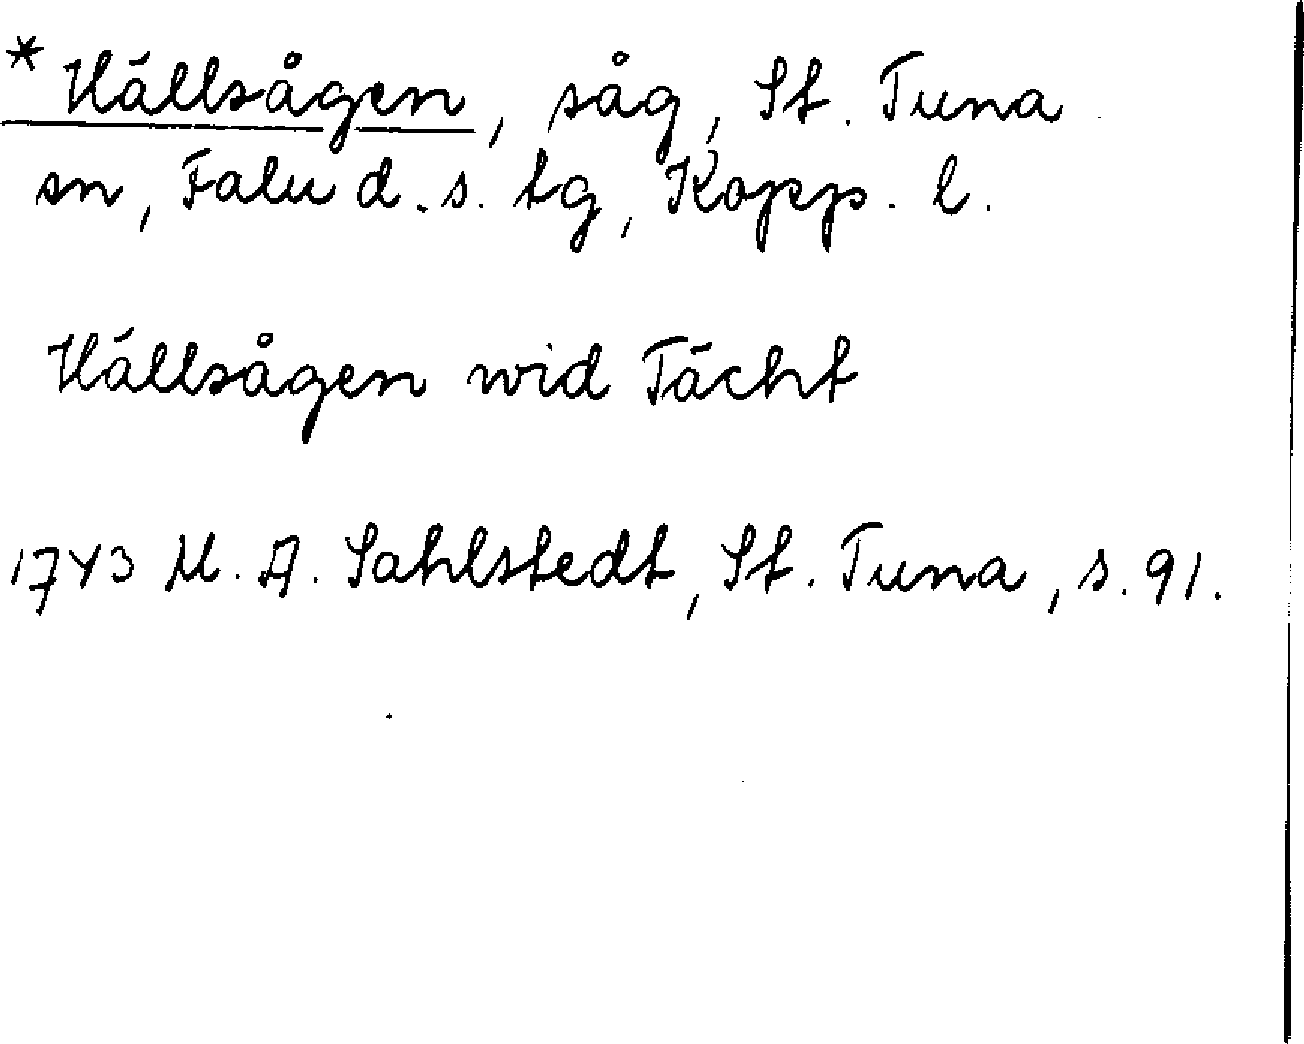 * Hällsågen, såg, St. Tuna
sn, Falu d. s. tg, Kopp. l.
Hällsågen wid Tächt
1743 M. A. Sahlstedt, St. Tuna, s. 91.